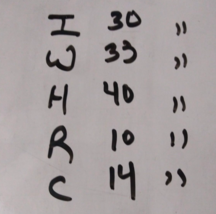 I 30 "
W 33 "
H 40 "
R 10 "
C 14 "